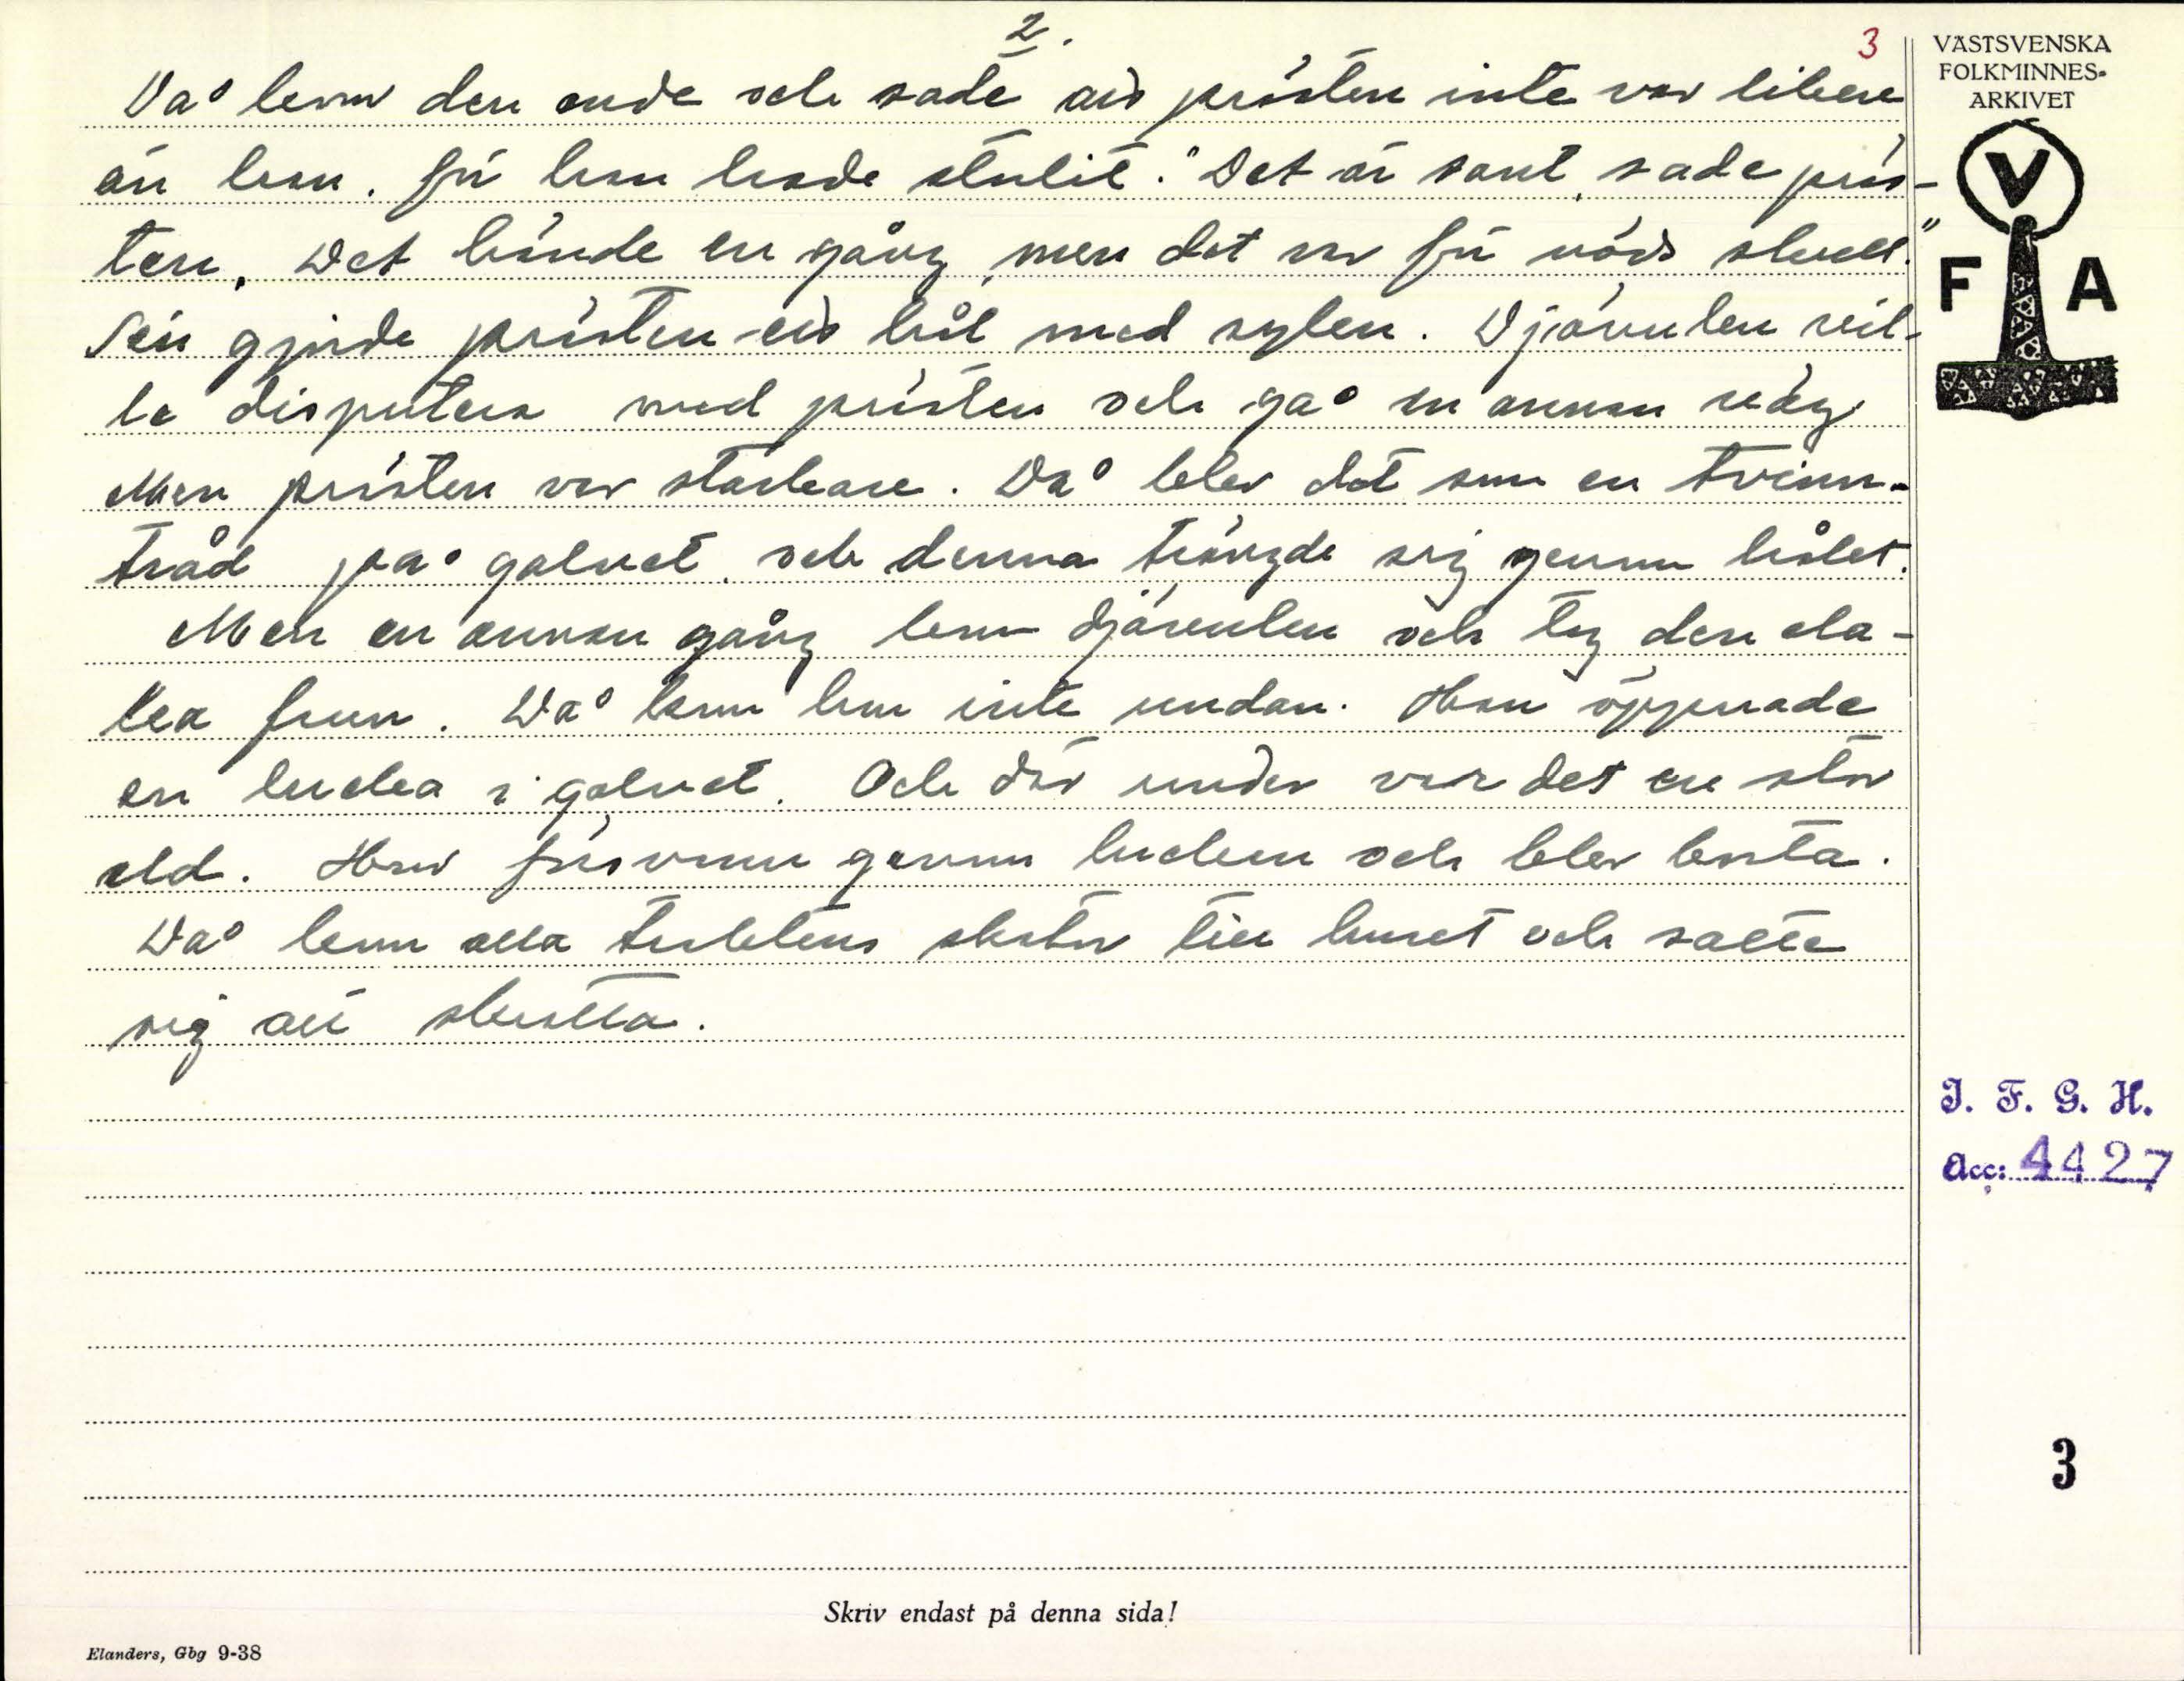 2.
3
VÄSTSVENSKA
FOLKMINNES-
ARKIVET
V
F A
Då kom den onde och sade att prästen inte var bättre
än han, för han hade stulit. "Det är sant, sade präs-
ten. Det hände en gång, men det var för nöds skull."
Sen gjorde prästen ett hål med sylen. Djävulen vil-
le disputera med prästen och gå en annan väg
Men prästen var starkare. Då blev det som en tvinn-
tråd på golvet, och denna trängde sig genom hålet.
Men en annan gång kom djävulen och tog den ela-
ka frun. Då kom hon inte undan. Han öppnade
en lucka i golvet. Och där under var det en stor
eld. Hon försvann genom luckan och blev borta.
Då kom alla traktens skator till huset och satte
sig att skratta.
I. F. G. H.
Acc: 4427
3
Skriv endast på denna sida!
Elanders, Gbg 9-38